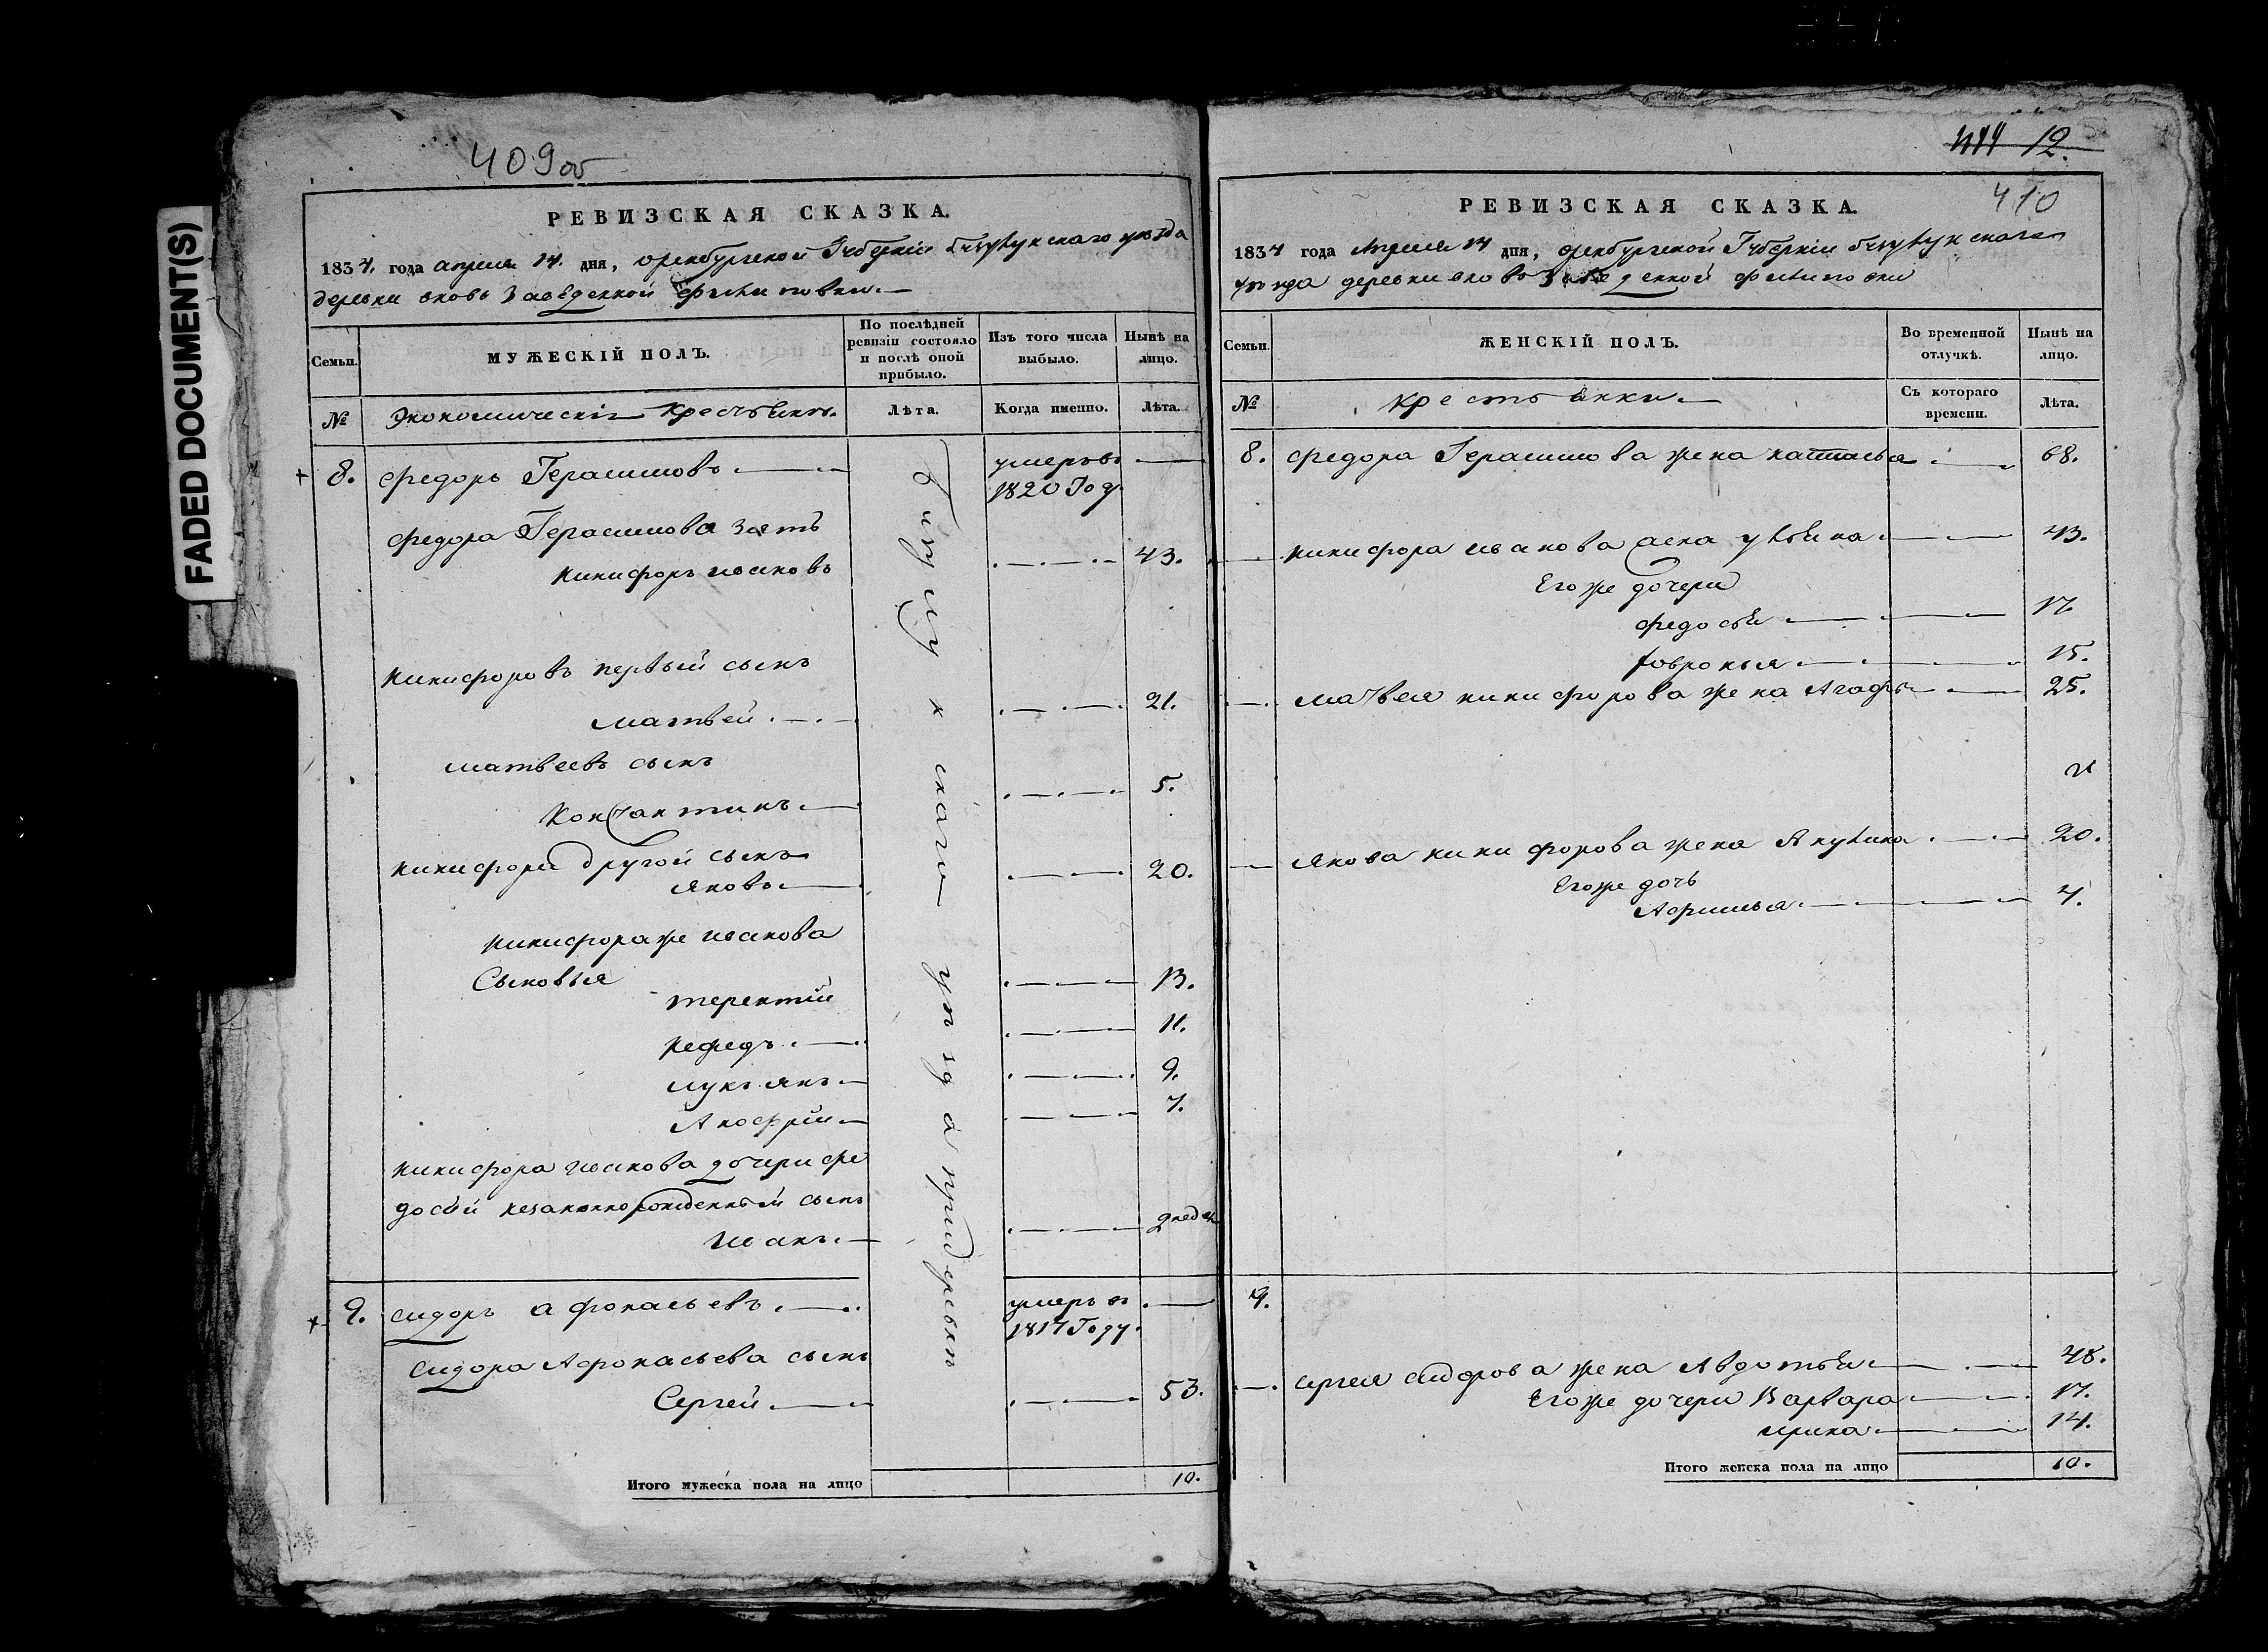 FADED DOCUMENT(S)
409об
РЕВИЗСКАЯ СКАЗКА.
1834. года апреля 14. дня, оренбургской Губернiи бузулукскаго уезда
деревни вновь Заведенной филиповки.
Семьи.
МУЖЕСКІЙ ПОЛЪ.
По послѣдней ревизіи состояло и послѣ оной прибыло.
Изъ того числа выбыло.
Нынѣ на лицо.
№
Экономическiя крестьяня.
Лѣта.
Когда именно.
Лѣта.
8. федоръ Герасимовъ умеръ въ
1820 Году
федора Герасимова зять
никифоръ ивановъ 43.
никифоровъ первый сынъ
матвей 21.
матвеевъ сынъ
Константинъ 5.
никифора другой сынъ
яковъ 20.
никифора же иванова
Сыновья
терентiй 13.
нефедъ 11.
лукъянъ 9.
Анофрiи 7.
никифора иванова дочери фе
досьи незаконнорожденный сынъ
иванъ 2 недели
9. сидоръ афонасьевъ умеръ в
1817 Году.
сидора Афонасьева сынъ
Сергей 53.
Итого мужеска пола на лицо 10.
к скаго уезда при деревни
12.
410
РЕВИЗСКАЯ СКАЗКА.
1834 года Апреля 14 дня, оренбургской Губернiи бузулукскаго
уезда деревни вновь Заведенной филиповки
Семьи.
ЖЕНСКІЙ ПОЛЪ.
Во временной отлучкѣ.
Нынѣ на лицо.
№
крестьянки
Съ котораго времени.
Лѣта.
8. федора Герасимова жена наталья 68.
никифора иванова жена ульяна 43.
Его же дочери
федосья 17
февронья 15.
матвея никифорова жена Агафья 25.
якова никифорова жена Акулина 20.
Его же дочь
Афимья 4.
9.
сергея сидорова жена Авдотья 48.
Его же дочери Варвара 17.
ирина 14.
Итого женска пола на лицо 10.